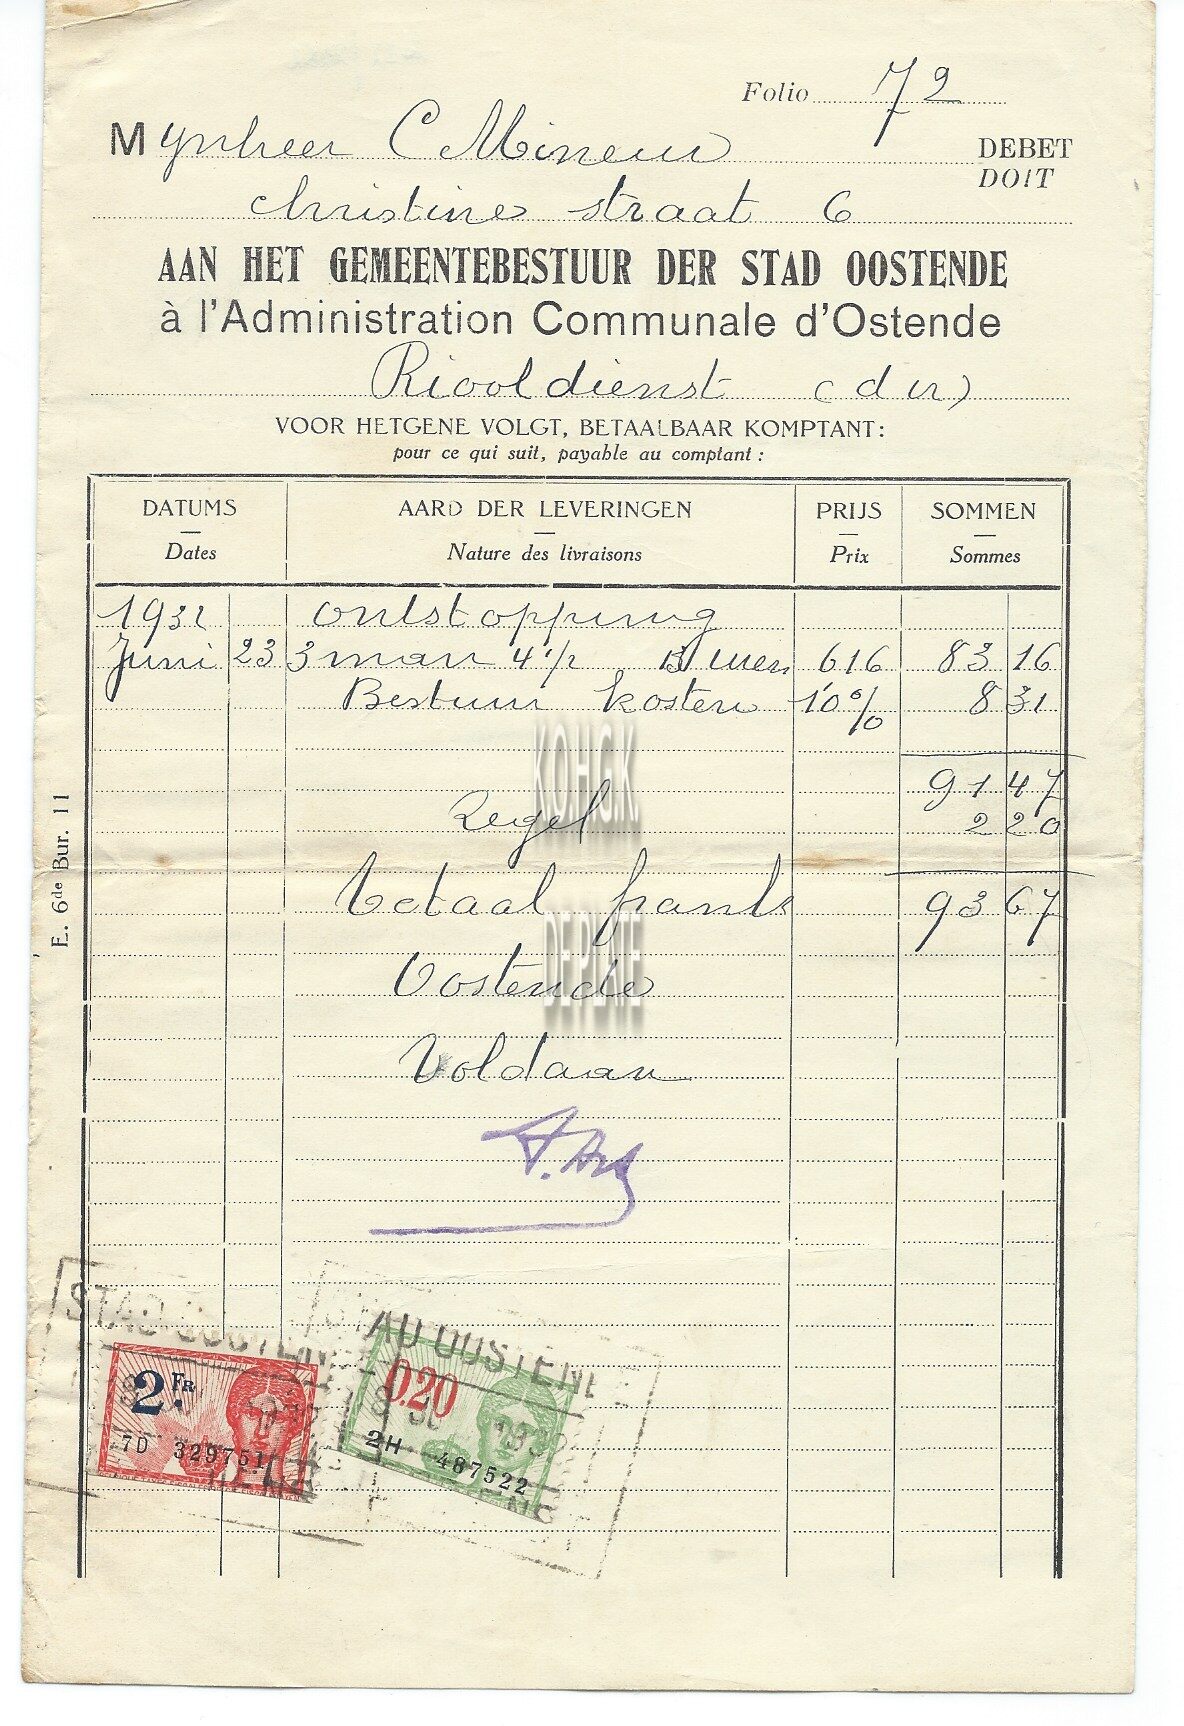 Folio 72
Mynheer C Mineur DEBET
DOIT
christine straat 6
AAN HET GEMEENTEBESTUUR DER STAD OOSTENDE
à l'Administration Communale d'Ostende
Riooldienst (dur)
VOOR HETGENE VOLGT, BETAALBAAR KOMPTANT:
pour ce qui suit, payable au comptant :
DATUMS AARD DER LEVERINGEN PRIJS SOMMEN
Dates Nature des livraisons Prix Sommes
1932 ontstopping
Juni 23 3 man 4 1/2 uren 616 83 16
Bestuur kosten 10% 8 31
K.O.H.G.K.
91 47
Zegel 2 20
Totaal frank 93 67
DE PLATE
Oostende
Voldaan
E. 6de Bur. 11
STAD OOSTENDE
STAD OOSTENDE
2.FR
0.20
7D 329751
2H 487522